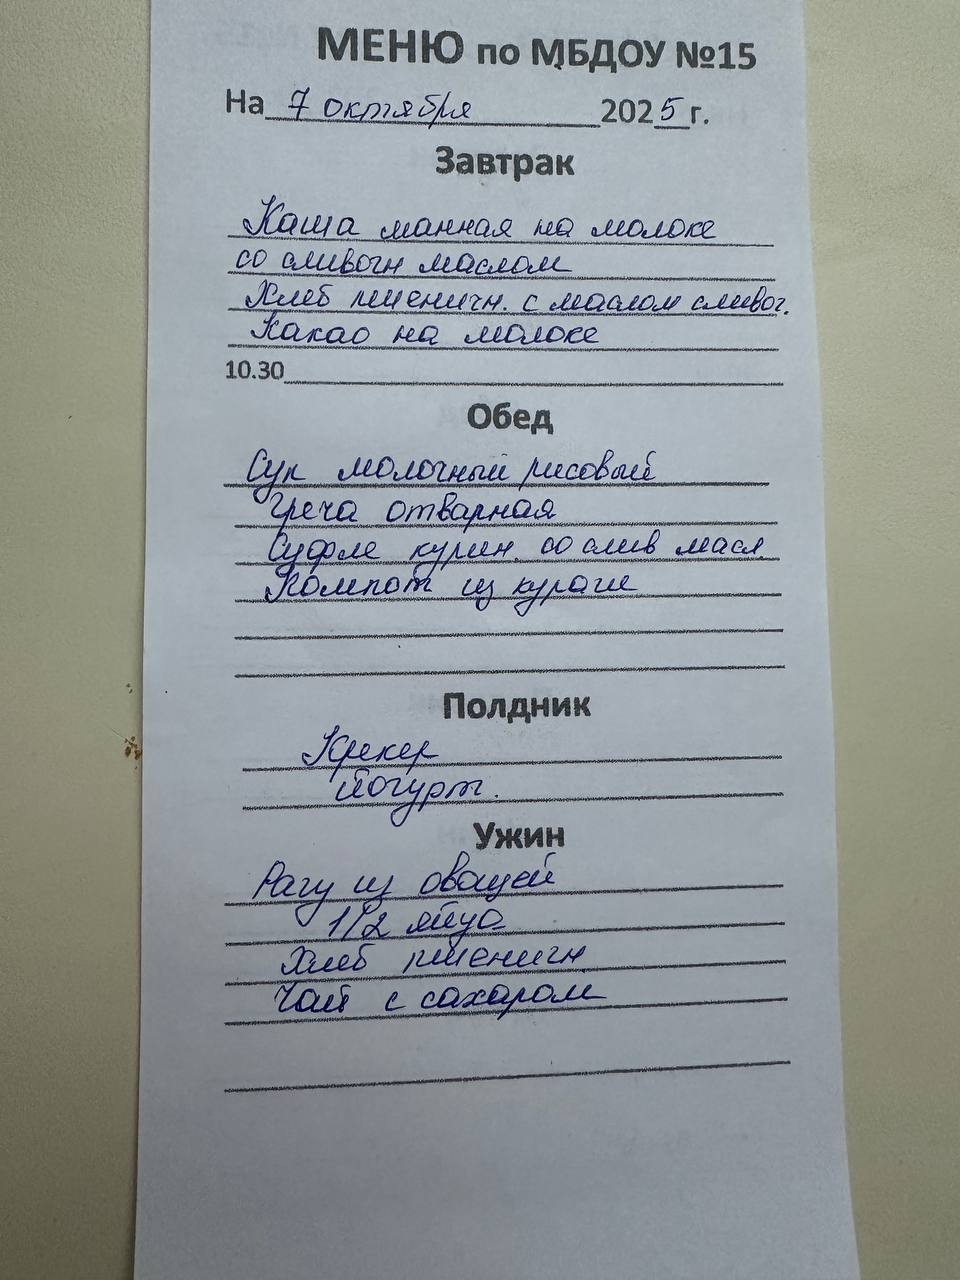 МЕНЮ по МБДОУ №15
На 7 октября 2025 г.
Завтрак
Каша манная на молоке
со сливочн маслом
Хлеб пшеничн. с маслом сливоч.
Какао на молоке
10.30
Обед
Суп молочный рисовый
Греча отварная
Суфле курин. со слив масл
Компот из кураги
Полдник
Крекер
Йогурт.
Ужин
Рагу из овощей
1/2 яйца
Хлеб пшеничн
Чай с сахаром